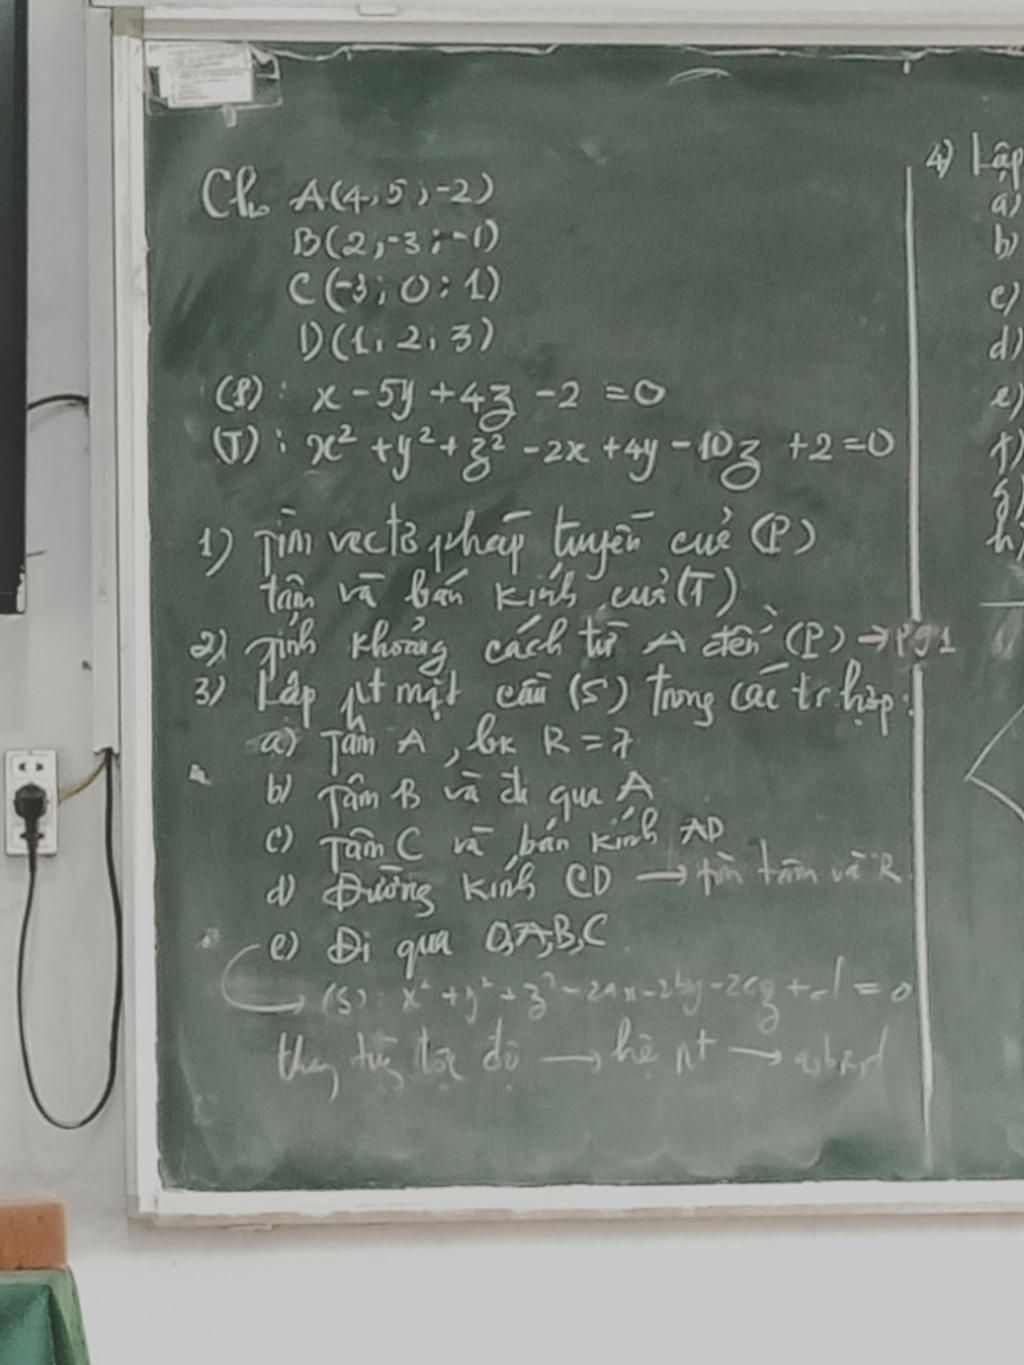 Cho A(4;5;-2)
B(2;-3;-1)
C(-3;0;1)
D(1;2;3)
(P): x - 5y + 4z - 2 = 0
(T): x² + y² + z² - 2x + 4y - 10z + 2 = 0
1) Tìm vectơ pháp tuyến của (P)
tâm và bán kính của (T)
2) Tính khoảng cách từ A đến (P) → Pg1
3) Lập pt mặt cầu (S) trong các tr hợp:
a) Tâm A, bk R = 7
b) Tâm B và đi qua A
c) Tâm C và bán kính AD
d) Đường kính CD → tìm tâm và R
e) Đi qua O,A,B,C
(S): x² + y² + z² - 2ax - 2by - 2cz + d = 0
thay từng tọa độ → hệ pt → a,b,c,d
4) Lập
a)
b)
c)
d)
e)
f)
g)
h)